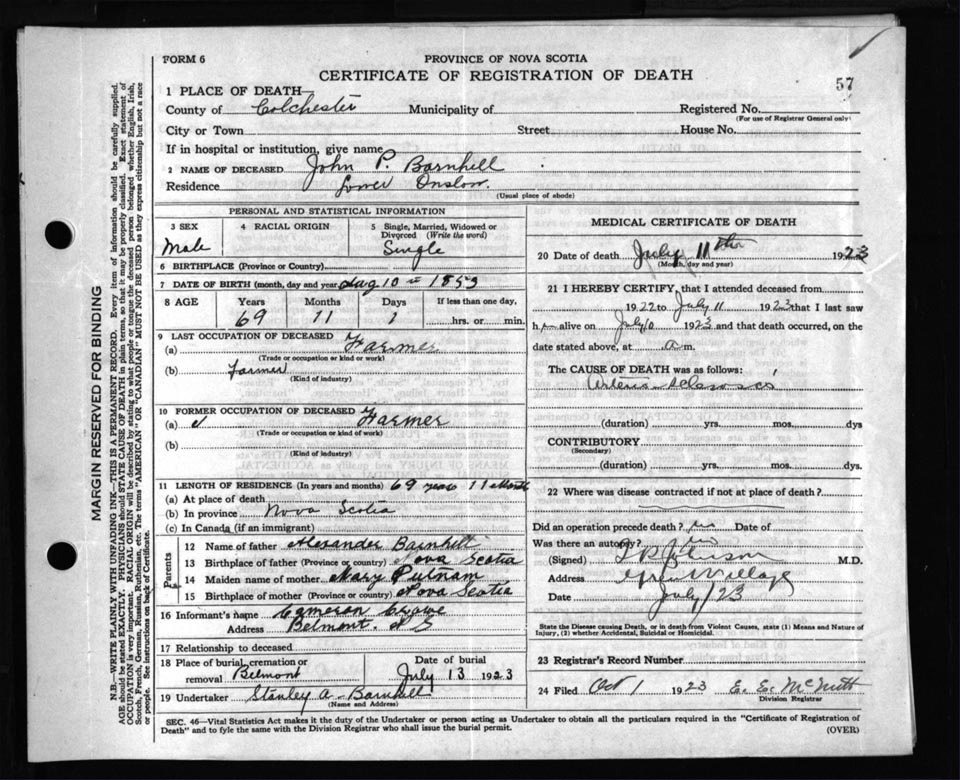 FORM 6
PROVINCE OF NOVA SCOTIA
CERTIFICATE OF REGISTRATION OF DEATH
57
1 PLACE OF DEATH—
County of Colchester Municipality of Registered No.
(For use of Registrar General only)
City or Town Street House No.
If in hospital or institution, give name
2 NAME OF DECEASED John P. Barnhill
Residence Lower Onslow.
(Usual place of abode)
PERSONAL AND STATISTICAL INFORMATION
3 SEX 4 RACIAL ORIGIN 5 Single, Married, Widowed or Divorced (Write the word)
Male Single
6 BIRTHPLACE (Province or Country)
7 DATE OF BIRTH (month, day and year) Aug 10th 1853
8 AGE Years Months Days If less than one day,
69 11 1 hrs. or min.
9 LAST OCCUPATION OF DECEASED
(a) Farmer
(Trade or occupation or kind or work)
(b) Farmer
(Kind of industry)
10 FORMER OCCUPATION OF DECEASED
(a) Farmer
(Trade or occupation or kind of work)
(b)
(Kind of industry)
11 LENGTH OF RESIDENCE (In years and months) 69 years 11 Month
(a) At place of death
(b) In province Nova Scotia
(c) In Canada (if an immigrant)
Parents
12 Name of father Alexander Barnhill
13 Birthplace of father (Province or country) Nova Scotia
14 Maiden name of mother Mary Putnam
15 Birthplace of mother (Province or country) Nova Scotia
16 Informant's name Cameron Crowe
Address Belmont. N S
17 Relationship to deceased
18 Place of burial, cremation or removal Belmont Date of burial July 13 1923
19 Undertaker Stanley A Barnhill
(Name and Address)
MEDICAL CERTIFICATE OF DEATH
20 Date of death July 11th 1923
(Month, day and year)
21 I HEREBY CERTIFY, that I attended deceased from
1922 to July 11 1923 that I last saw
h alive on July 10 1923 and that death occurred, on the
date stated above, at a m.
The CAUSE OF DEATH was as follows:
Arterio
(duration) yrs. mos. dys
CONTRIBUTORY
(Secondary)
(duration) yrs. mos. dys.
22 Where was disease contracted if not at place of death?
Did an operation precede death? no Date of
Was there an autopsy? no
(Signed) M.D.
Address Village
Date July / 23
State the Disease causing Death, or in death from Violent Causes, state (1) Means and Nature of Injury, (2) whether Accidental, Suicidal or Homicidal.
23 Registrar's Record Number
24 Filed Oct 1 1923 E. E. McNutt
Division Registrar
SEC. 46—Vital Statistics Act makes it the duty of the Undertaker or person acting as Undertaker to obtain all the particulars required in the "Certificate of Registration of
Death" and to fyle the same with the Division Registrar who shall issue the burial permit.
(OVER)
MARGIN RESERVED FOR BINDING
N.B.—WRITE PLAINLY WITH UNFADING INK—THIS IS A PERMANENT RECORD. Every item of information should be carefully supplied.
AGE should be stated EXACTLY. PHYSICIANS should STATE CAUSE OF DEATH in plain terms, so that it may be properly classified. Exact statement of
OCCUPATION is very important. RACIAL ORIGIN will be described by stating to what people or tongue the deceased person belonged whether English, Irish,
Scotch, French, German, Russian, Ruthenian, etc. The terms "AMERICAN" OR "CANADIAN" MUST NOT BE USED as they express citizenship but not a race
or people. See instructions on back of Certificate.